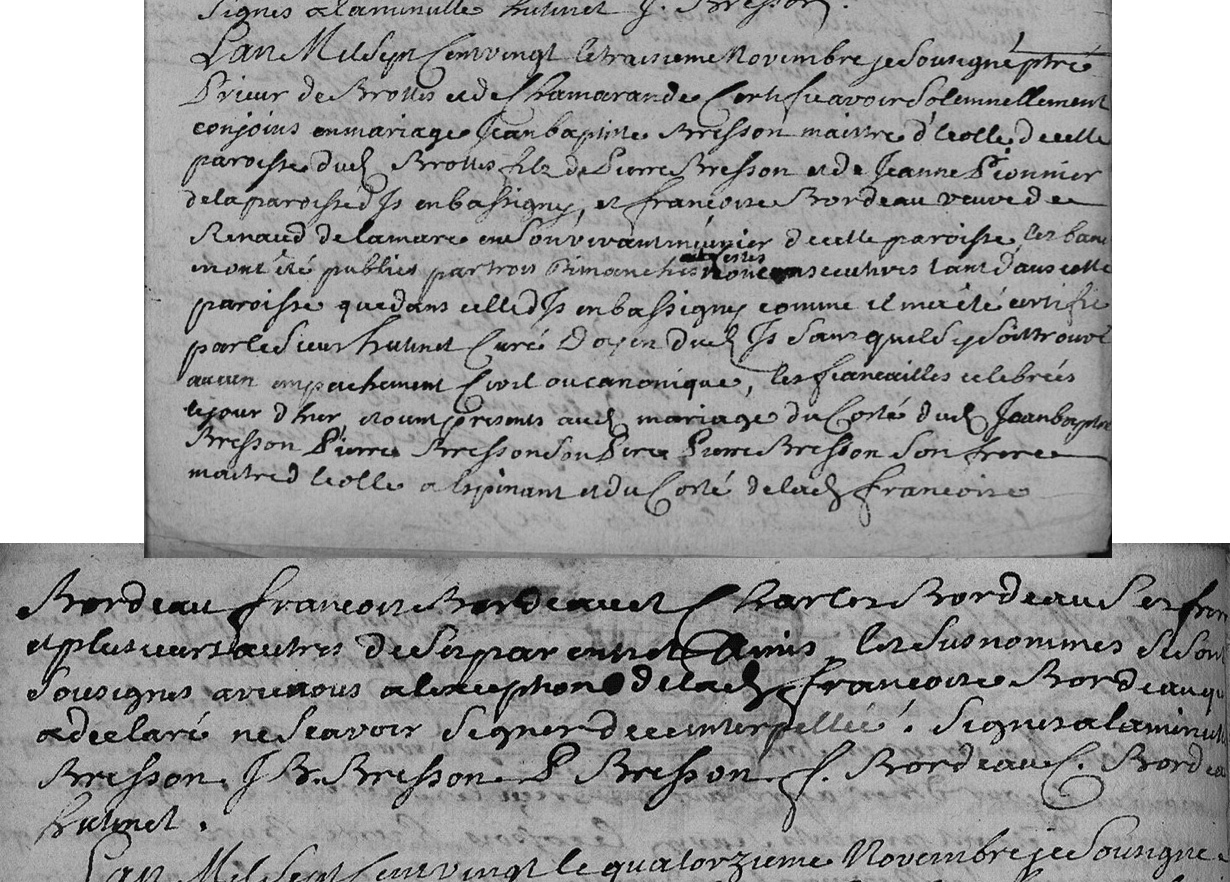 signés a la minutte hutinet J. Bresson.
L'an Mil Sept Cent vingt le traisieme Novembre je Sousigné ptre
Prieur de Brottes et de Chamarande Certifie avoir Solemnellement
conjoins en mariage Jean baptiste Bresson maittre d'Ecolle de cette
paroisse dud Brottes fils de Pierre Bresson et de Jeanne Pionnier
de la paroisse d'Is en bassigny, et francoise Bordeau veuve de
Renaud delamare en son vivant munier de cette paroisse, les bans
mont été publiés par trois Dimanches consecutives tant dans cette
paroisse que dans celle d'Is en bassigny comme il m'a été certifié
par le Sieur hutinet Curé Doyen dud Is sans quel sy soit trouvé
aucun empechement Civil ou canonique, les fiancailles celebrées
le jour d'hier, etoient presents aud mariage du Coté dud Jean baptiste
Bresson Pierre Bresson Son Pere Pierre Bresson Son frere
maitre d'Ecolle a Espinant et du Coté de lad francoise
Bordeau francois Bordeau et Charles Bordeau Ses freres
et plusieurs autres de Ses parents et Amis, les Susnommés Se Sont
Sousignés avec nous a l'exception de lad francoise Bordeau qui
a declaré ne Scavoir Signer de ce interpellée. Signés a la minutte
Bresson J B. Bresson P Bresson f. Bordeau C. Bordeau
hutinet.
L'an Mil Sept Cent vingt le quatorzieme Novembre je Sousigné